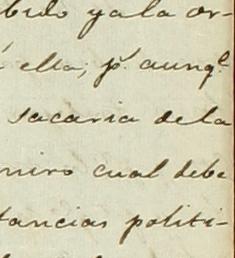 bido ya la or-
ella; p.ª aunq.e
sacaria dela
niro cual debe
tancias politi-